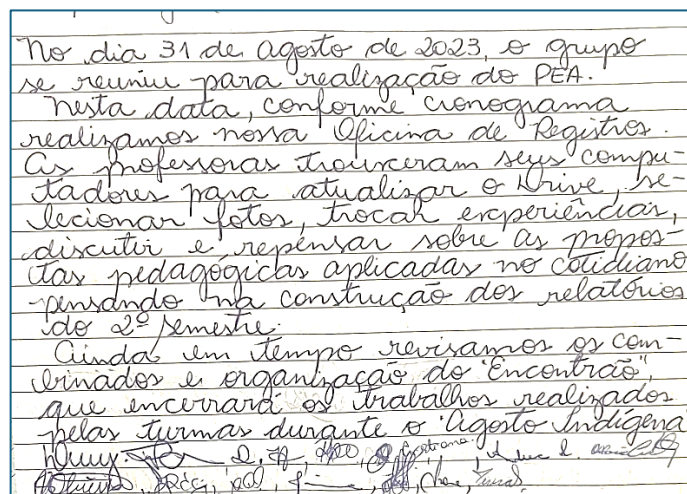 No dia 31 de agosto de 2023, o grupo
se reuniu para realização do PEA.
Nesta data, conforme cronograma
realizamos nossa Oficina de Registros.
As professoras trouxeram seus compu-
tadores para atualizar o Drive, se-
lecionar fotos, trocar experiências,
discutir e repensar sobre as propos-
tas pedagógicas aplicadas no cotidiano
pensando na construção dos relatórios
do 2º semestre.
Ainda em tempo revisamos os com-
binados e organização do "Encontrão",
que encerrará os trabalhos realizados
pelas turmas durante o "Agosto Indígena